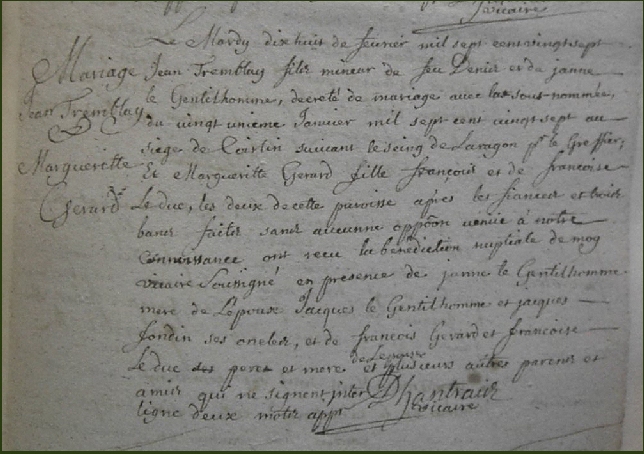 vicaire
Le Mardy dix huit de feurier mil sept cent vingt sept
Mariage
Jean Tremblay fils mineur de feu Denis et de janne
Jean Tremblay
le Gentilhomme, decreté de mariage avec la sous nommée,
du vingt unieme Janvier mil sept cent vingt sept au
siege de suivant le seing de Laragon pr le Greffier,
Margueritte
Et Margueritte Gerard fille francois et de francoise
Gerard
Le duc, les deux de cette paroisse après les fiances et trois
bancs faits sans aucunne oppôon venue à notre
connoissance ont recu la benediction nuptiale de moy
vicaire Soussigné en presence de janne le Gentilhomme
mere de Lepouse Jacques le Gentilhomme et jacques
ses oncles, et de francois Gerard et francoise
de Lepouse
Le duc des pere et mere et plusieurs autres parents et
amis qui ne signent inter
Dhantraix
ligne deux mots appr
vicaire